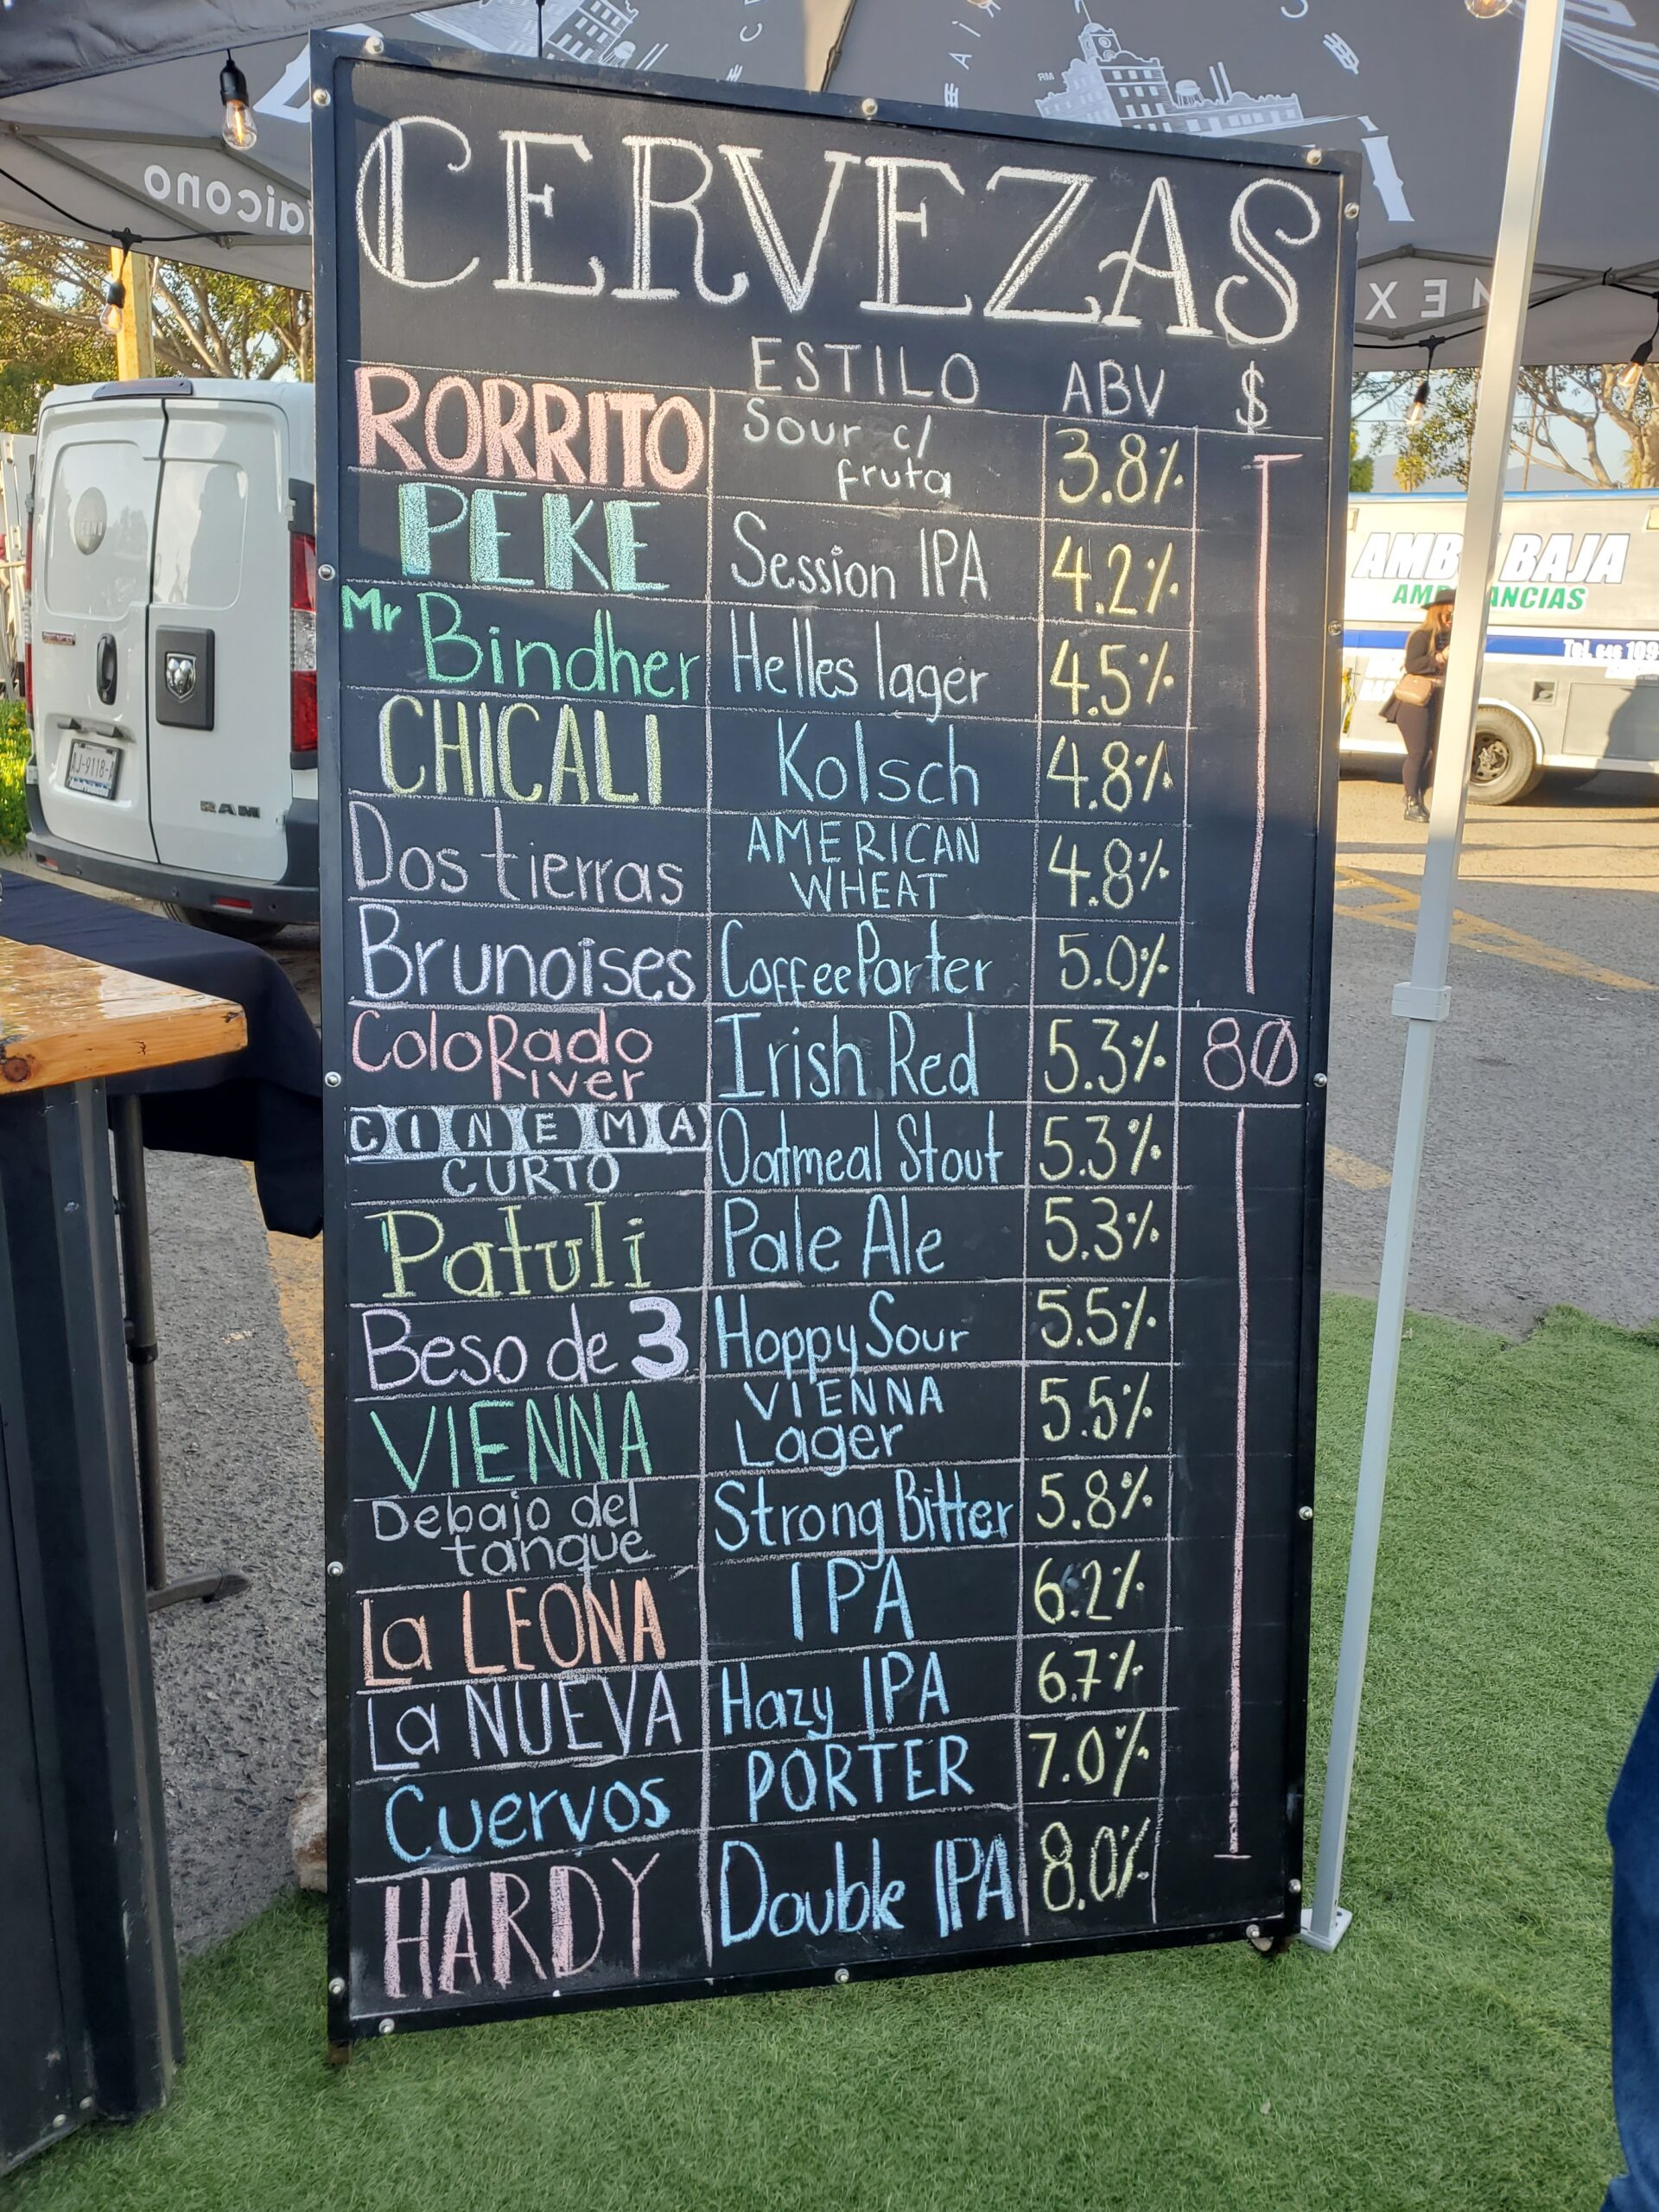 CERVEZAS
ESTILO ABV $
RORRITO Sour c/ fruta 3.8%
PEKE Session IPA 4.2%
Mr Bindher Helles lager 4.5%
CHICALI Kolsch 4.8%
Dos tierras AMERICAN WHEAT 4.8%
Brunoises Coffee Porter 5.0%
ColoRado River Irish Red 5.3% 80
CINEMA CURTO Oatmeal Stout 5.3%
Patuli Pale Ale 5.3%
Beso de 3 Hoppy Sour 5.5%
VIENNA VIENNA Lager 5.5%
Debajo del tanque Strong Bitter 5.8%
La LEONA IPA 6.2%
La NUEVA Hazy IPA 6.7%
Cuervos PORTER 7.0%
HARDY Double IPA 8.0%
RAM
BAJA